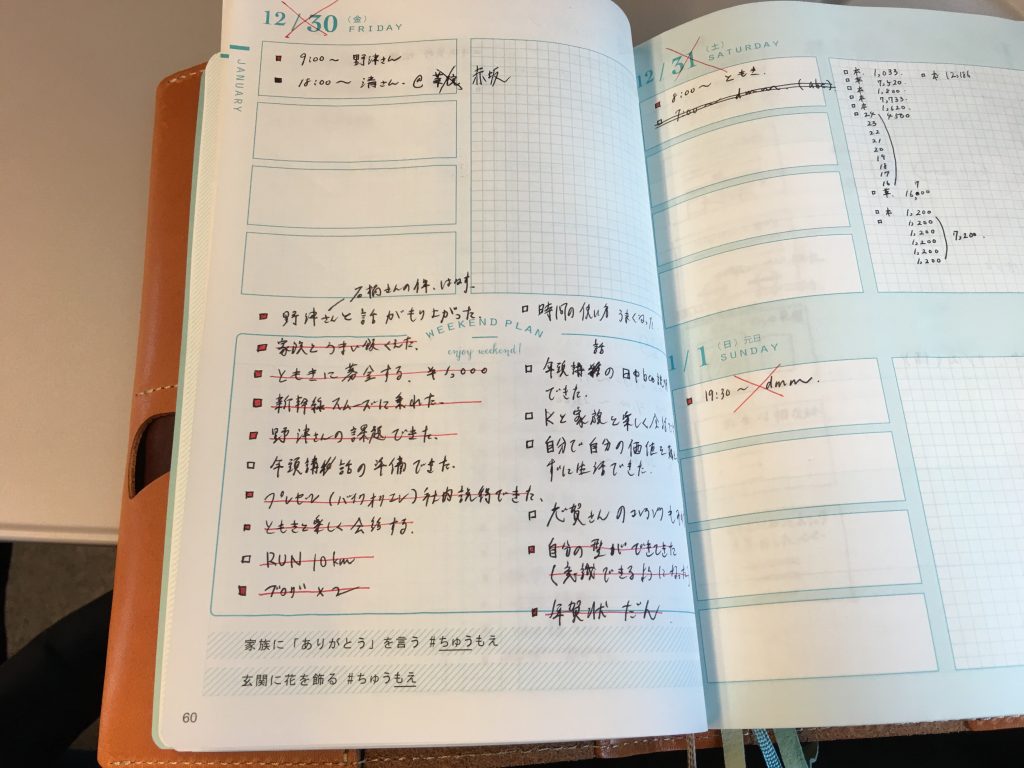 12/30 (金) FRIDAY
JANUARY
9:00〜 野津さん
18:00〜 清さん @ 赤坂
石橋さんの件、はなす。
野津さんと話がもり上がった。
WEEKEND PLAN
enjoy weekend!
家族とうまい飯くえた.
ともきに募金する. ¥1,000
新幹線スムーズに乗れた.
野津さんの課題できた.
年頭講話の準備できた.
プレゼン(バイクオリエン)社内説得できた.
ともきと楽しく会話する.
RUN 10km
ブログ×2
時間の使い方 うまくなった
年頭講話の日中
できた.
Kと家族と楽しく会話
自分で自分の価値を
ずに生活できた.
志賀さんのコンサル
自分の型ができてきた
(意識できるようになった)
年賀状 だん
家族に「ありがとう」を言う #ちゅうもえ
玄関に花を飾る #ちゅうもえ
60
12/31 (土) SATURDAY
8:00〜 ともき.
9:00〜 dmm. (abc)
本 1,033.
車 7,420
本 1,800.
本 7,733.
本 1,620.
24 4,500
23
22
21
20
19
18
17
16 7
車. 16,000
本 12,186
本 1,200
1,200
1,200
1,200
1,200
1,200
7,200.
1/1 (日) 元日 SUNDAY
19:30〜 dmm.